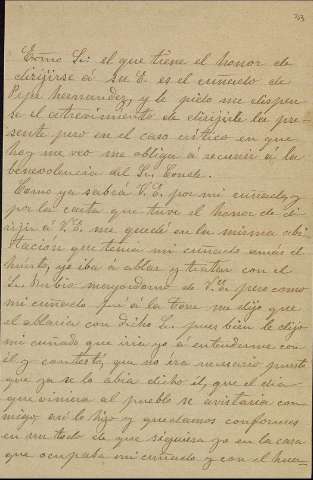 Exmo Sr: el que tiene el honor de
dirijirse á Su E. es el cuñado de
Pepe hernandez, y le pido me dispen
se el atrevimiento de dirijirle la pre-
sente pero en el caso critico en que
hoy me veo me obliga á recurrir a la
benevolencia del Sr. Conde.
Como ya sabrá V. E. por mi cuñado, y
por la carta que tuve el honor de di
rijir á V. E. me quedé en la misma abi
tación que tenia mi cuñado emás el
huerto, yo iba á ablar y tratar con el
Sr. Rubio mayordomo de V. E. pero como
mi cuñado fué á la me dijo que
el ablaria con dicho Sr. pues bien le dijo
mi cuñado que iria yo á entenderme con
él y contestó, que no era nesesario puesto
que ya se lo abia dicho él, que el dia
que viniera al pueblo se avistaria con
migo, asi lo hizo y quedamos conformes
en un todo de que siguiera yo en la casa
que ocupaba mi cuñado y con el huer-